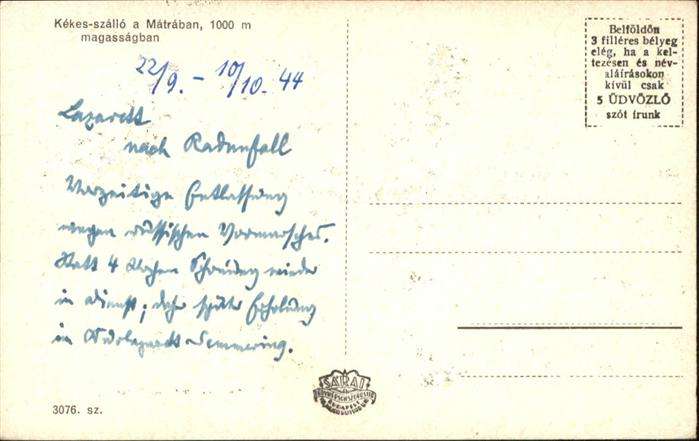 Kékes-szálló a Mátrában, 1000 m
magasságban
Belföldön
3 filléres bélyeg
elég, ha a kel-
tezésen és név-
aláírásokon
kívül csak
5 ÜDVÖZLŐ
szót írunk
22/9. – 10/10. 44
Lazarett
nach Radunfall
Vorzeitige Entlassung
wegen russischen Vormarsches.
Statt 4 Wochen wieder
in Dienst; daher später Erholung
in Semmering.
BUDAPEST
3076. sz.